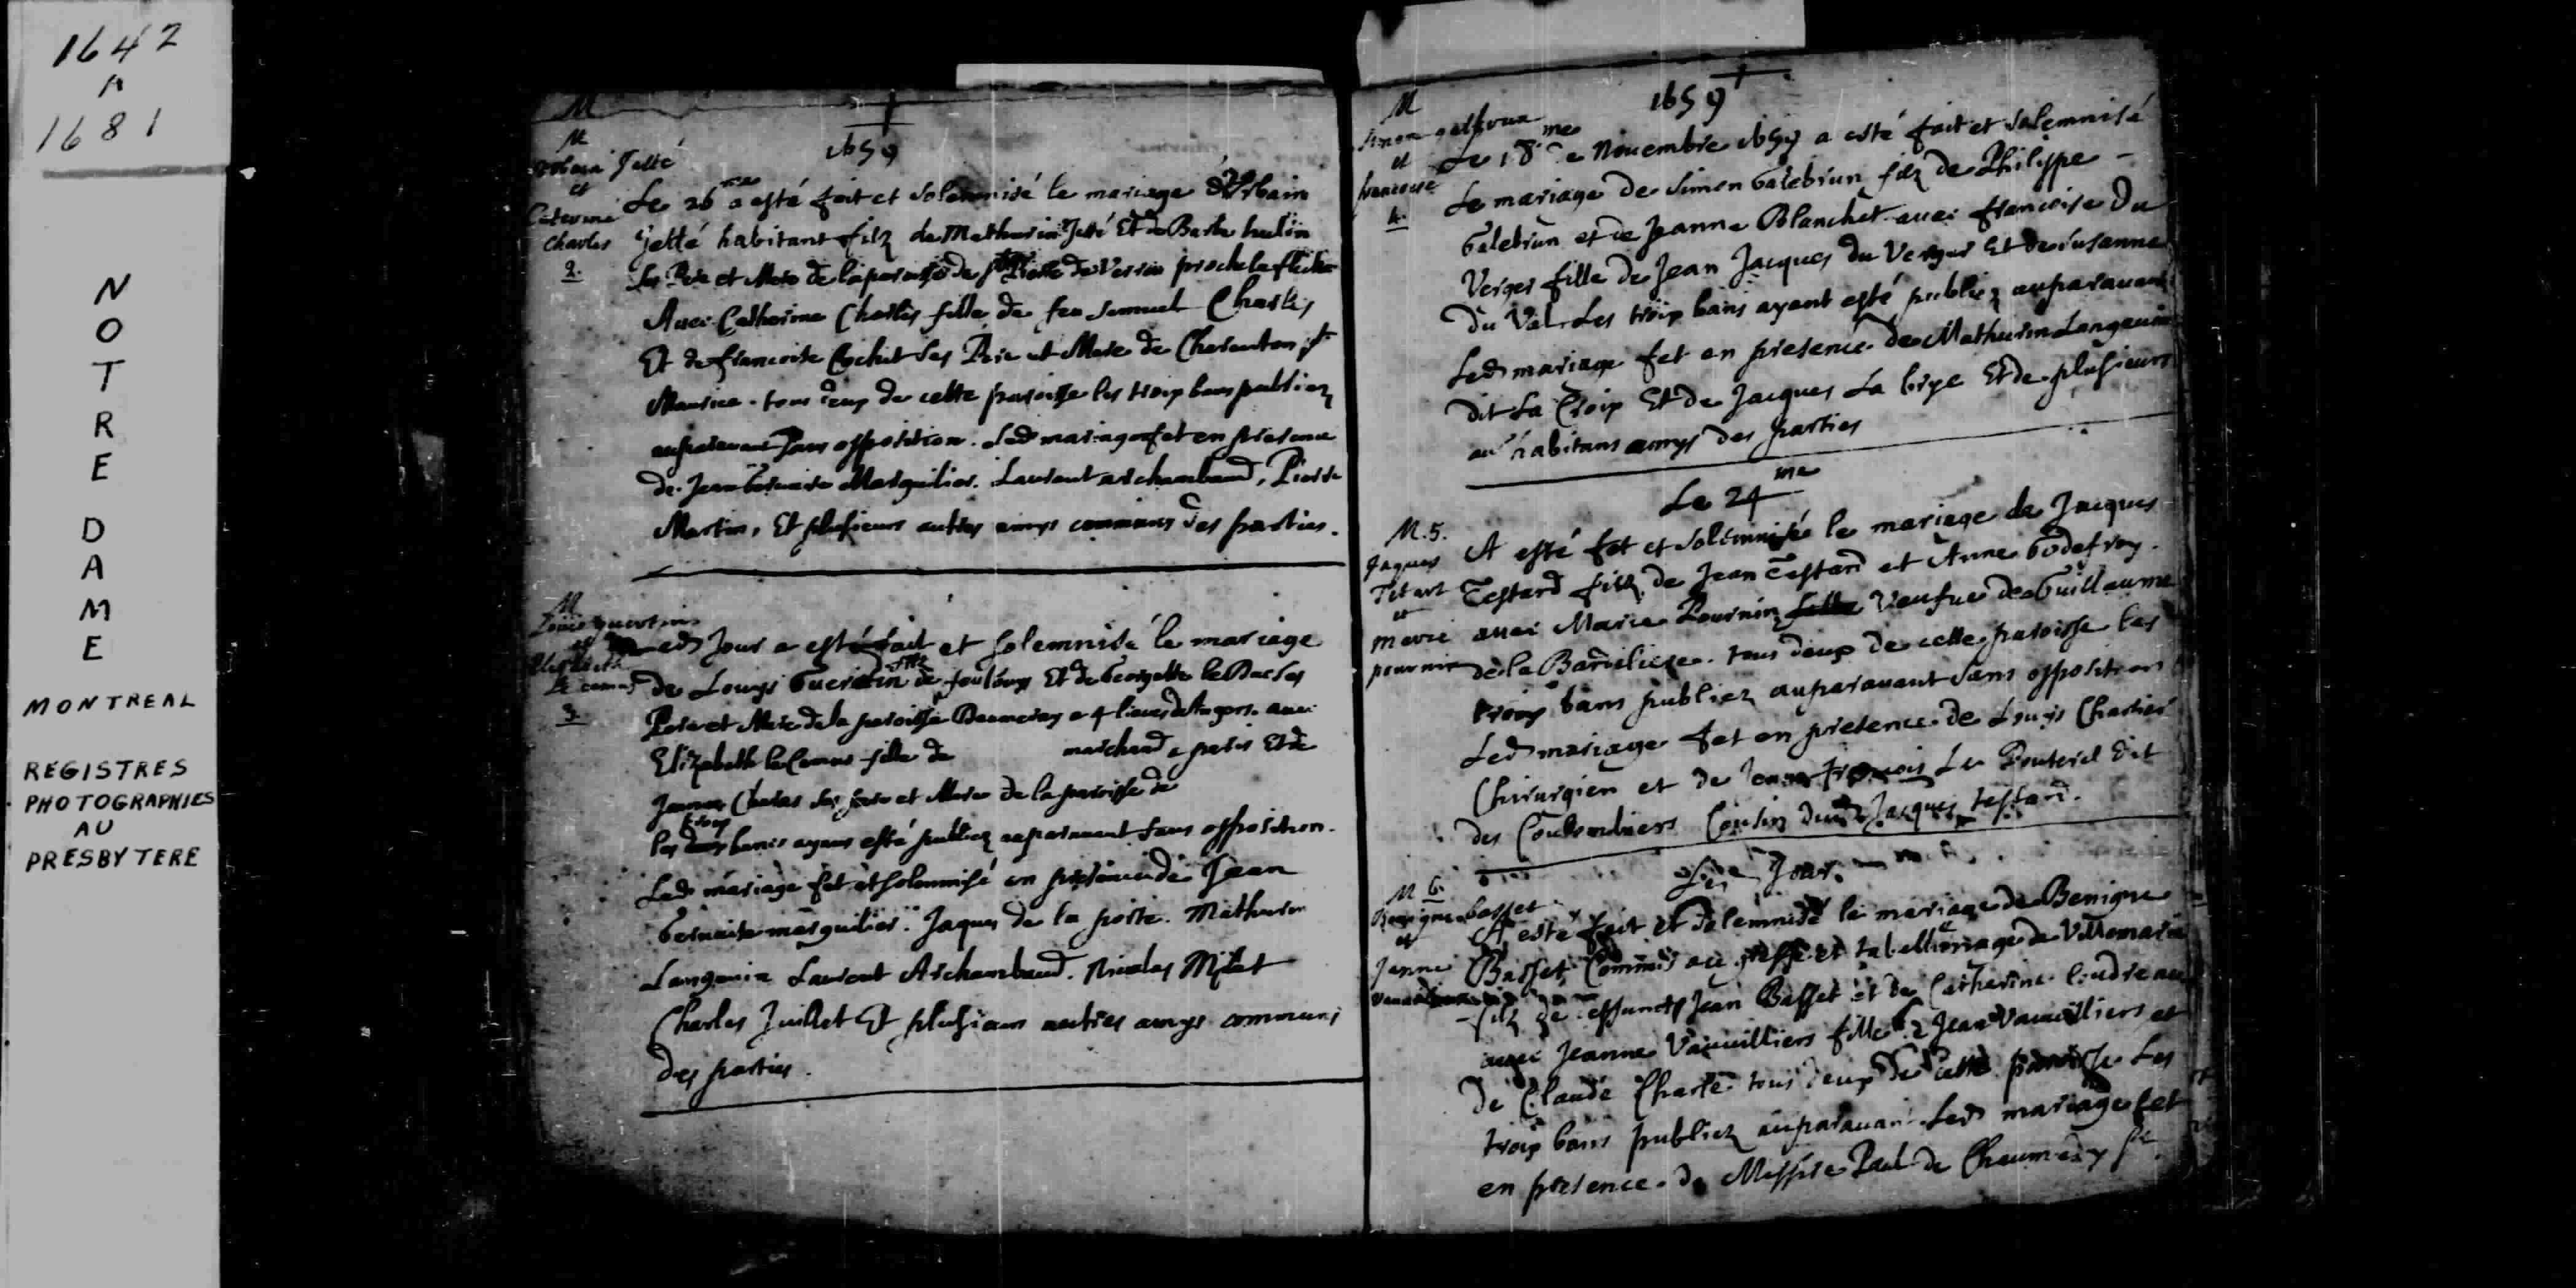 1642
A
1681
NOTRE
DAME
MONTREAL
REGISTRES
PHOTOGRAPHIES
AU
PRESBYTERE
M
1659
M
Jetté
et
Caterine
Charles
2.
Le 26me a esté fait et solemnisé le mariage d'Urbain
Jetté habitant filz de Mathurin Jetté Et de Barbe hulin
ses Pere et Mere de la paroisse de St Pierre de Verrin proche la fleche
Avec Catherine Charles fille de feu Samuel Charles
Et de francoise Cochet ses Pere et Mere de Charenton St
Maurice. tous deux de cette paroisse les trois bans publiez
auparavant sans opposition. Led mariage fet en presence
de Jean Gervaise Marguilier. Laurent archambaud, Pierre
Martin, Et plusieurs autres amys communs des parties.
M
Louis guertin
et
Elisabeth
le camus
3.
Led Jour a esté fait et solemnisé le mariage
de Louys Guertin filz de feu Louys Et de Georgette le Duc ses
Pere et Mere de la paroisse Daumeray a 4 lieues d'Angers. avec
Elizabeth le Camus fille de marchand a paris Et de
Jeanne Charas ses pere et Mere de la paroisse de
les trois bans ayans esté publiez auparavant sans opposition.
Led mariage fet et solemnisé en presence de Jean
Gervaise marguilier. Jaques de la porte. Mathurin
Langevin Laurent Archambaud. Nicolas Milet
Charles Juillet Et plusieurs autres amys communs
des parties.
1659
M
Simon galbrun
et
francoise
4.
Le 18me de Novembre 1659 a esté fait et solemnisé
Le mariage de Simon Galebrun filz de Philippe
Galebrun et de Jeanne Blanchet avec francoise Du
Verger fille de Jean Jacques du Verger Et de Susanne
Du Val. Les trois bans ayant esté publiez auparavant
Led mariage fet en presence de Mathurin Langevin
dit La Croix Et de Jacques La brye Et de plusieurs
au habitans amys des parties
Le 24me
M. 5.
Jaques
Tetart
et
Marie
pournin
A esté fet et solemnisé le mariage de Jacques
Testard filz de Jean Testard et Anne Godefroy
avec Marie Pournin fille Veufue de Guillaume
de la Bardiliere. tous deux de cette paroisse les
trois bans publiez auparavant sans opposition
Led mariage fet en presence de Louys Chartier
Chirurgien et de Jean francois Le Pouterel dit
des Coulombiers Cousin dud Jacques testard.
Led Jour
M 6.
Benigne basset
et
Jenne
A esté fait et solemnisé le mariage de Benigne
Basset Commis au greffe et tabellionage de Villemarie
filz de deffuncts Jean Basset et de Catherine Coudreau
avec Jeanne Vauvilliers fille de Jean Vauvilliers et
De Claude Charlé tous deux de cette paroisse Les
trois bans publiez auparavant. Led mariage fet
en presence de Messire Paul de Chaumedy Sr.